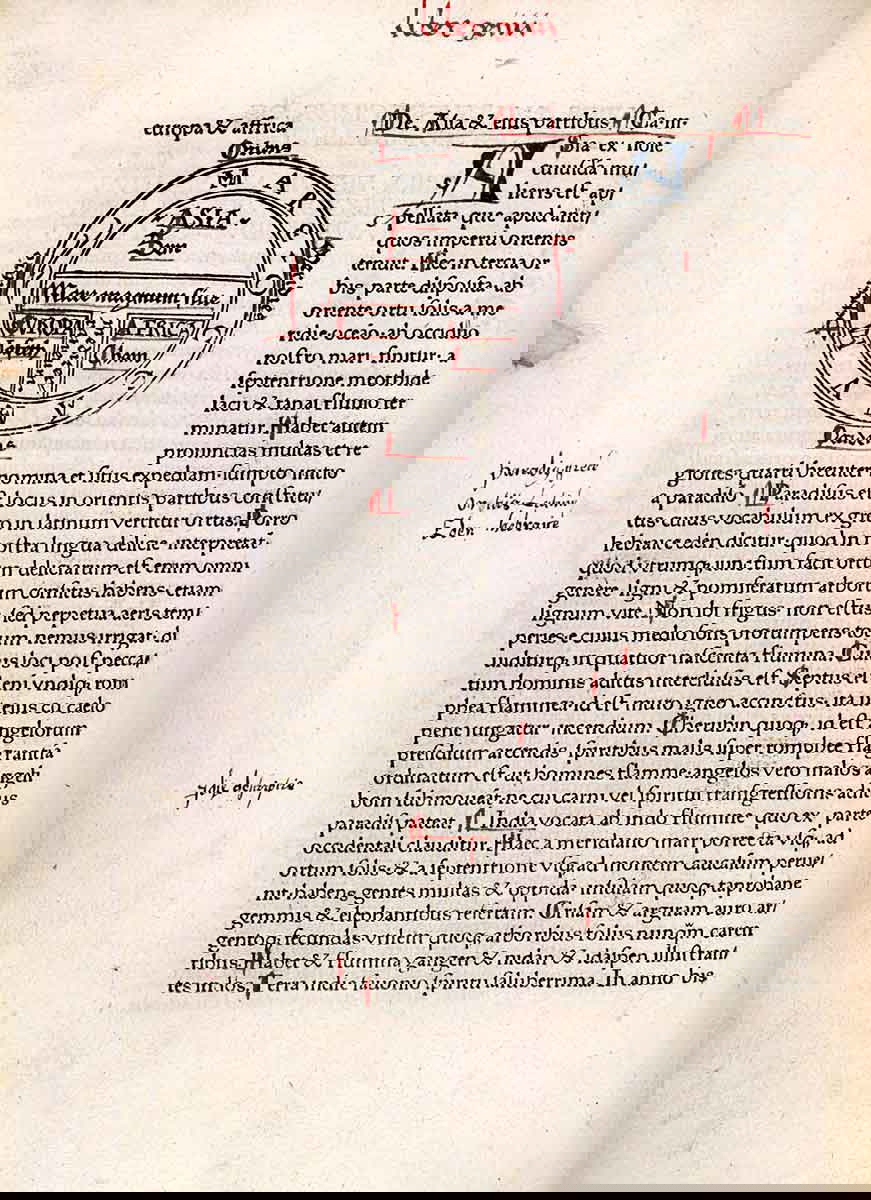 liber
europa & affrica
Oriens
MARE OCEANUM
ASIA
Sem
Mare magnum siue
EVROPA
AFRICA
Cham
De Asia & eius partibus. Ca. iii.
ASia ex noïe
cuiusdã mu/
lieris est ap/
pellata. que apud anti/
quos imperiũ orientis
tenuit. Hec in tercia or
bis parte disposita. ab
oriente ortu solis. a me
ridie oceão. ab occiduo
nostro mari finitur. a
septentrione meothide
lacu & tanai fluuio ter
minatur. Habet autem
prouincias multas et re
giones. quarũ breuiter
nomina et situs expediam. sumpto initio
a paradiso. Paradisus est
locus in orientis partibus constitu/
tus. cuius vocabulum ex gre
co in latinum vertitur ortus. Porro
hebraice eden dicitur. quod in n
ostra lingua delicie interpretat̃.
quod vtrumq̃ iunctum facit ortu
m deliciarum. est enim omni
genere ligni & pomiferarum arbor
um consitus habens. etiam
lignum vite. Non ibi frigus. non estus
sed perpetua aeris tem/
peries. e cuius medio fons prorumpens. tot
um nemus irrigat. di
uiditurq̃. in quatuor nascentia flumina. Cui
us loci post pecca/
tum hominis aditus interclusus est. Septus e
st eni vndiq̃ rom
phea flammea. id est muro igneo accinctus. ita
ut eius cũ caelo
pene iungatur incendium. Cherubin quoq̃. id est
angelorum
presidium arcendis spiritibus malis super romphee flag
rantiã
ordinatum est. ut homines flamme. angelos vero malos
angeli
boni submoueãt. ne cui carni vel spiritui transgressionis adit
us
paradisi pateat. India vocata ab indo flumine quo ex parte
occidentali clauditur. Haec a meridiano mari porrecta vsq̃. ad
ortum solis. & a septentrione vsq̃ ad montem caucasum perue/
nit. habens gentes multas & oppida. insulam quoq̃. taprobane
gemmis & elephantibus refertam. Crisam & argiram auro ar/
gentoq̃. fecundas. vtilem quoq̃ arboribus folijs nunq̃m caren
tibus. Habet & flumina gangen & indan & idaspen illustran/
tes indos. Terra indie fauonij spiritu saluberrima. In anno bis
Eden hebraice